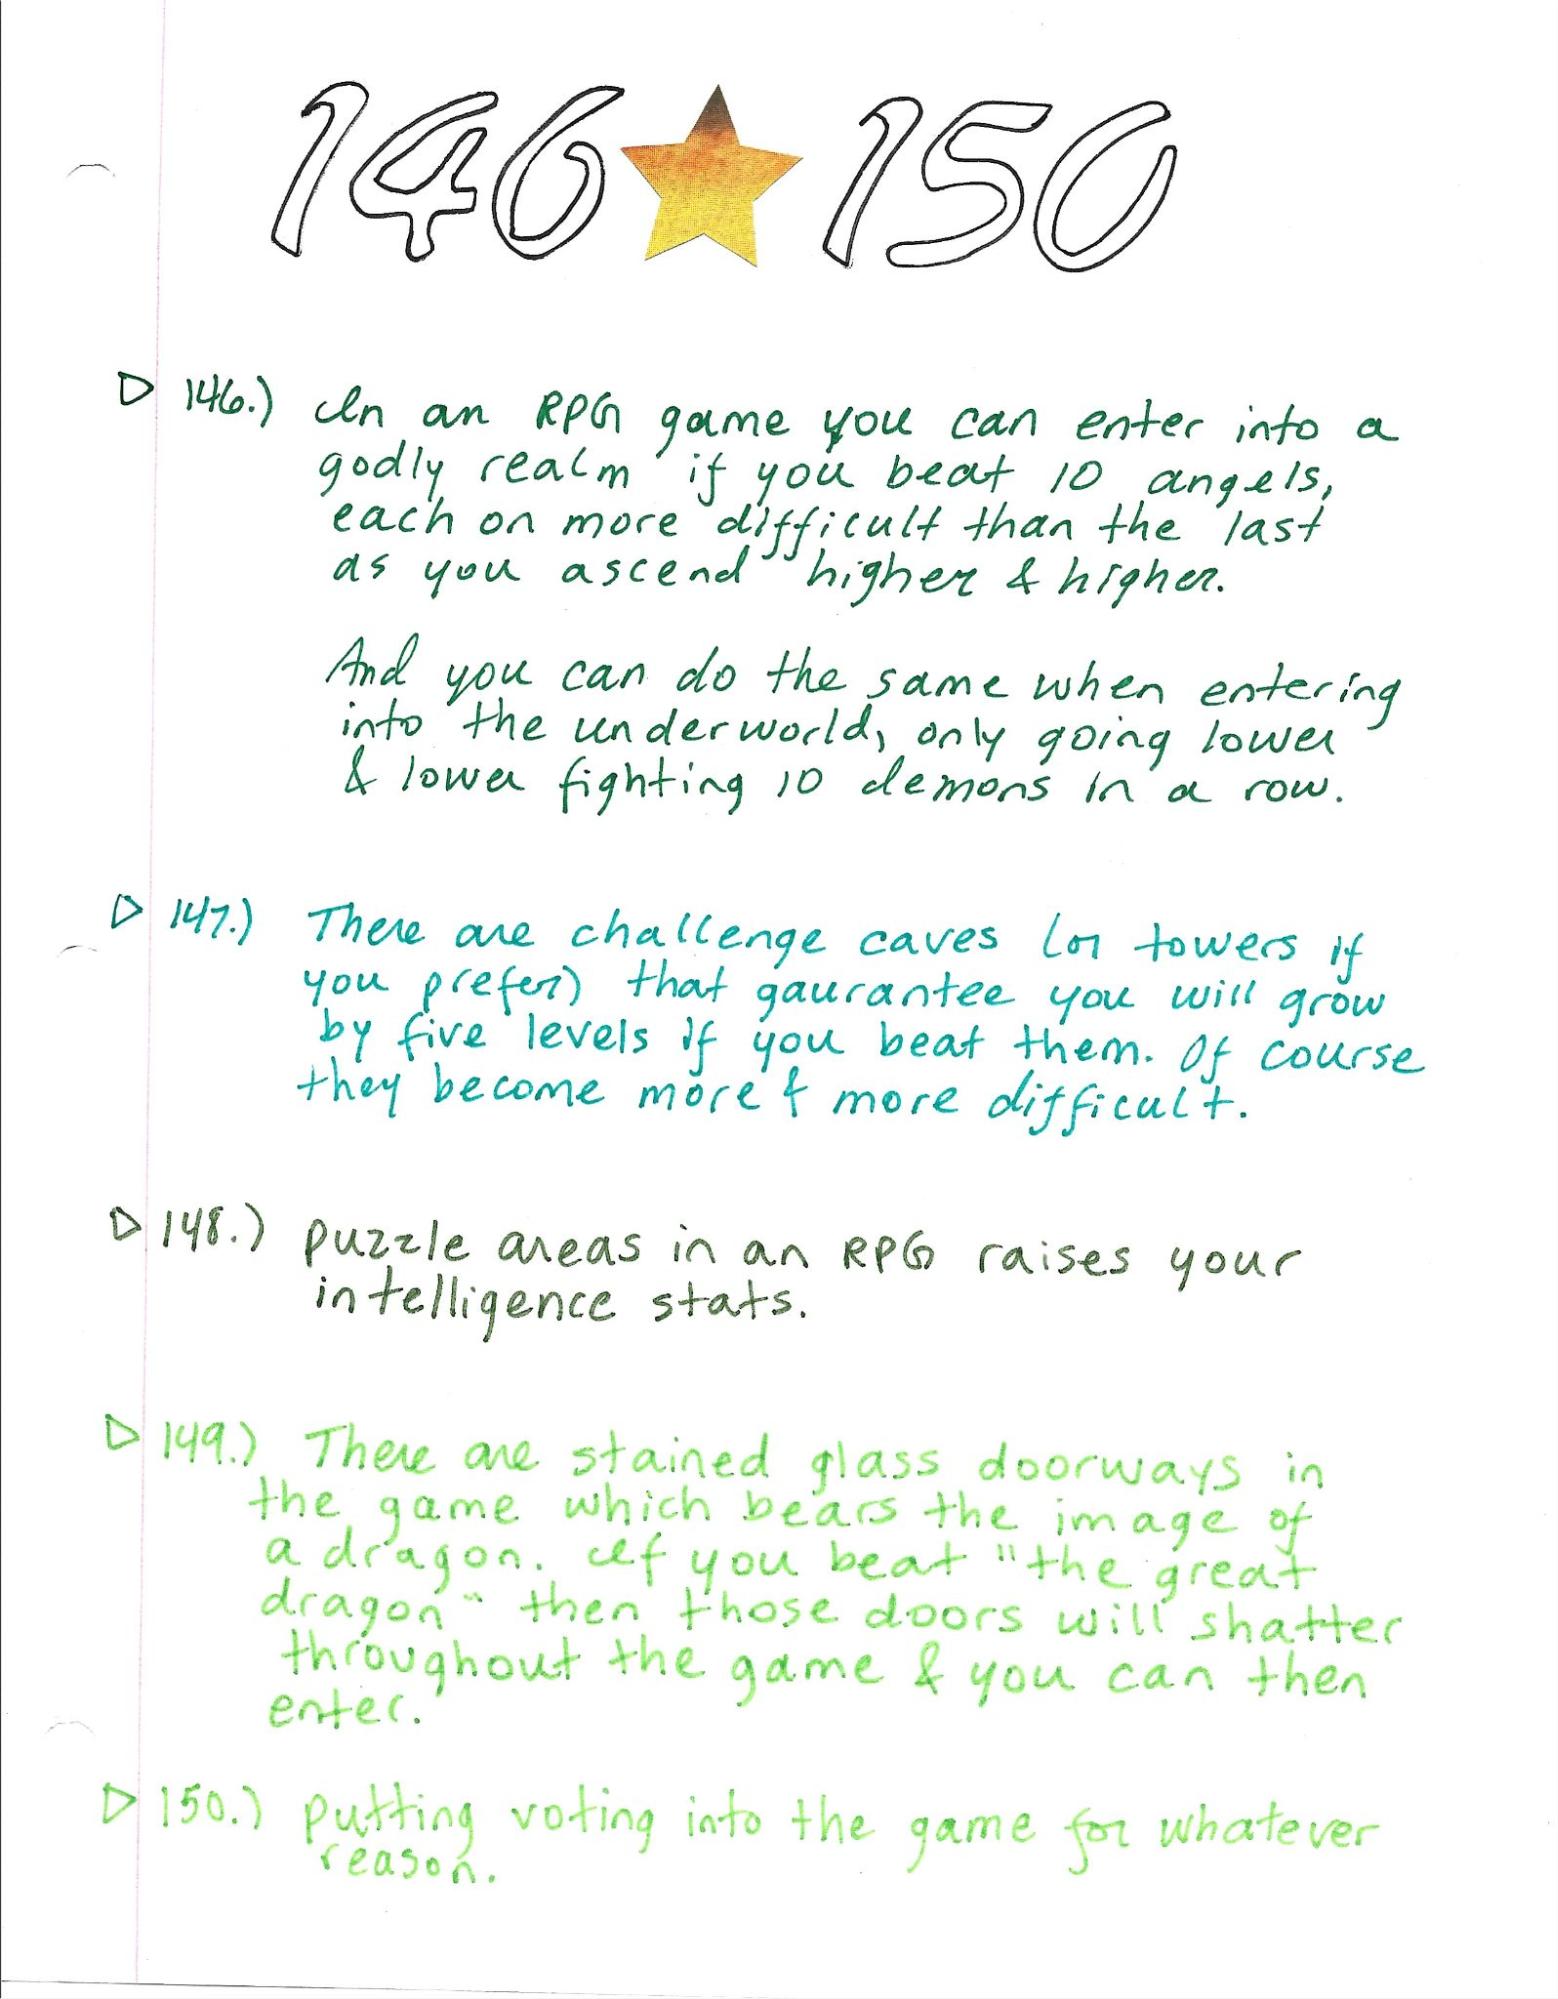 146 150
146.) In an RPG game you can enter into a
godly realm if you beat 10 angels,
each on more difficult than the last
as you ascend higher & higher.
And you can do the same when entering
into the underworld, only going lower
& lower fighting 10 demons in a row.
147.) There are challenge caves (or towers if
you prefer) that gaurantee you will grow
by five levels if you beat them. Of course
they become more & more difficult.
148.) Puzzle areas in an RPG raises your
intelligence stats.
149.) There are stained glass doorways in
the game which bears the image of
a dragon. If you beat "the great
dragon" then those doors will shatter
throughout the game & you can then
enter.
150.) Putting voting into the game for whatever
reason.